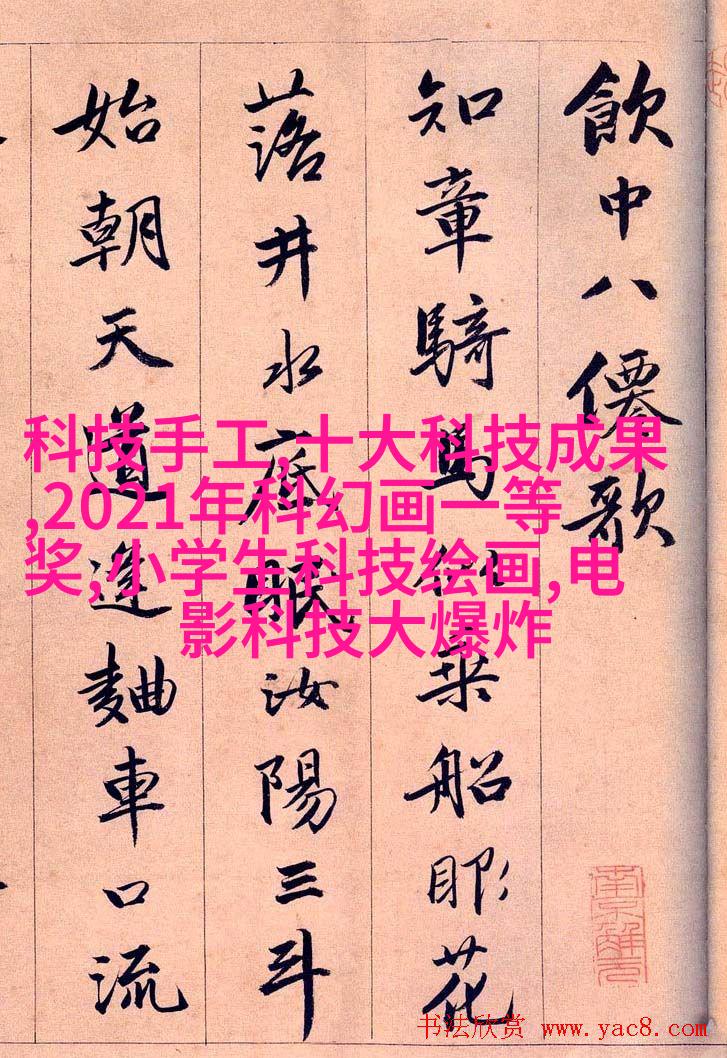 飲中八僊歌
知章騎馬似乘船眼花
落井水底眠汝陽三斗
始朝天道逢麯車口流
科技手工,十大科技成果
,2021年科幻画一等
奖,小学生科技绘画,电
影科技大爆炸
南京解元
书法欣赏 www.yac8.com